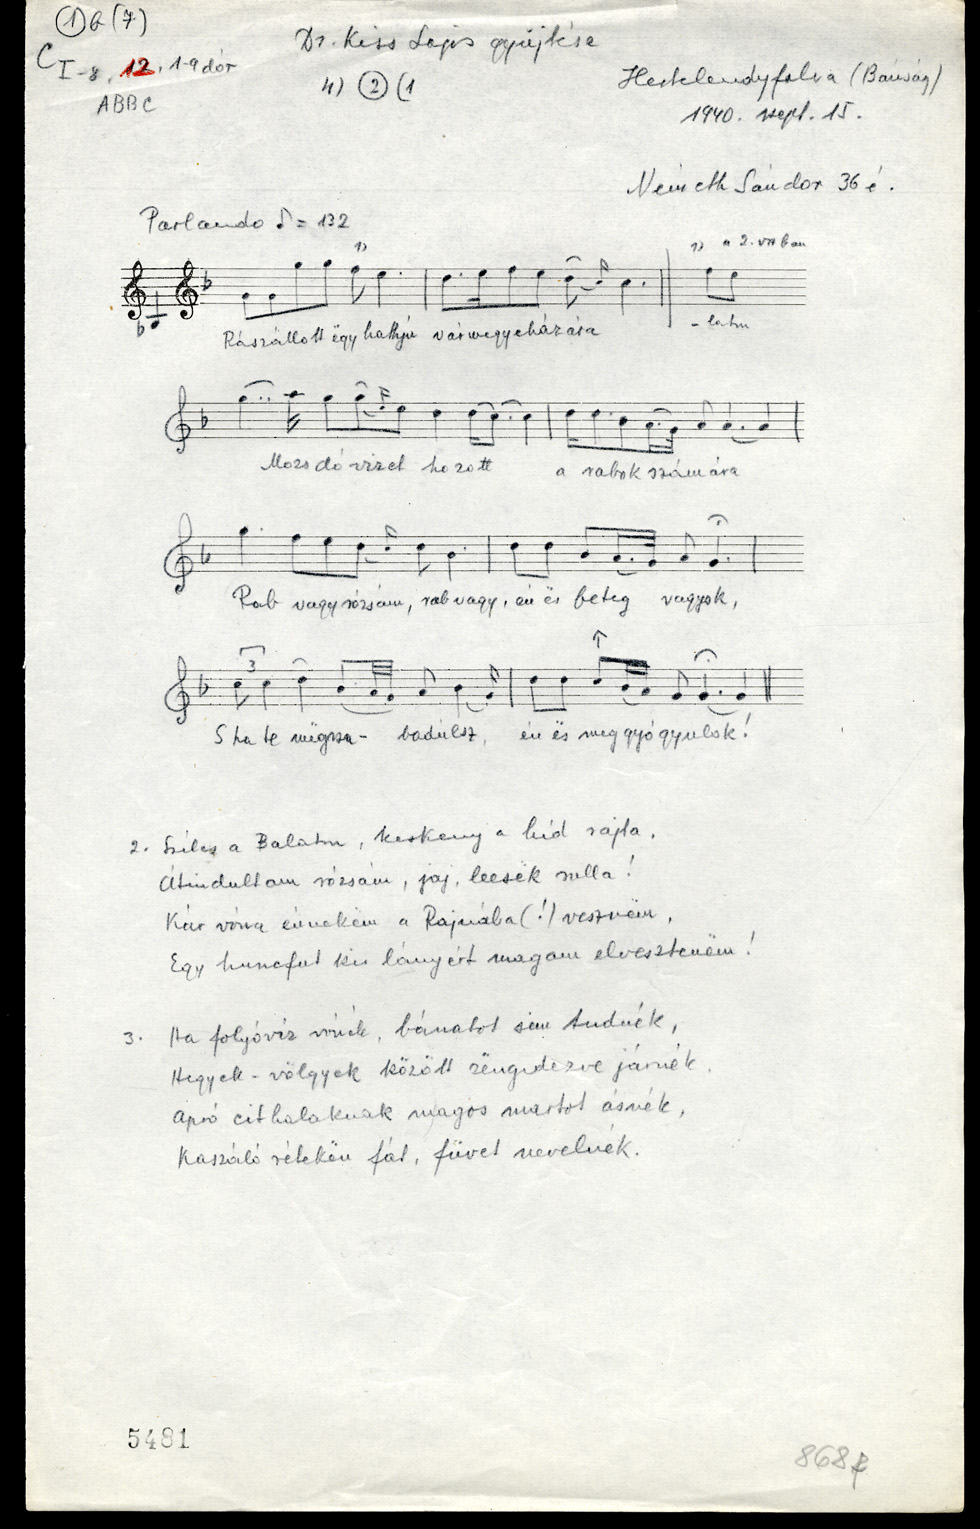 ① b (7)
C I-8, 12, 1-9 dór
ABBC
Dr. Kiss Lajos gyűjtése
4) ② (1
Hertelendyfalva (Bánság)
1940. szept. 15.
Németh Sándor 36 é.
Parlando ♪ = 132
1)
1) a 2. vsban
Rászállott ëgy hattyú vármegyeházára
- laton
Mozsdóvizet hozott a rabok számára
Rab vagy rózsám, rab vagy, én ës beteg vagyok,
3
S ha te mëgsza- badúlsz, én ës meggyógyulok!
2. Széles a Balaton, keskeny a híd rajta,
Átindultam rózsám, jaj, leesëk rulla!
Kár vóna énnekëm a Rajnába (!) vesznëm,
Egy huncfut kis lányért magam elvesztenëm!
3. Ha folyóvíz vónék, bánatot sëm tudnék,
Hegyek - völgyek között zëngedezve járnék,
Apró cithalaknak magos martot ásnék,
Kaszáló rétekën fát, füvet nevelnék.
5481